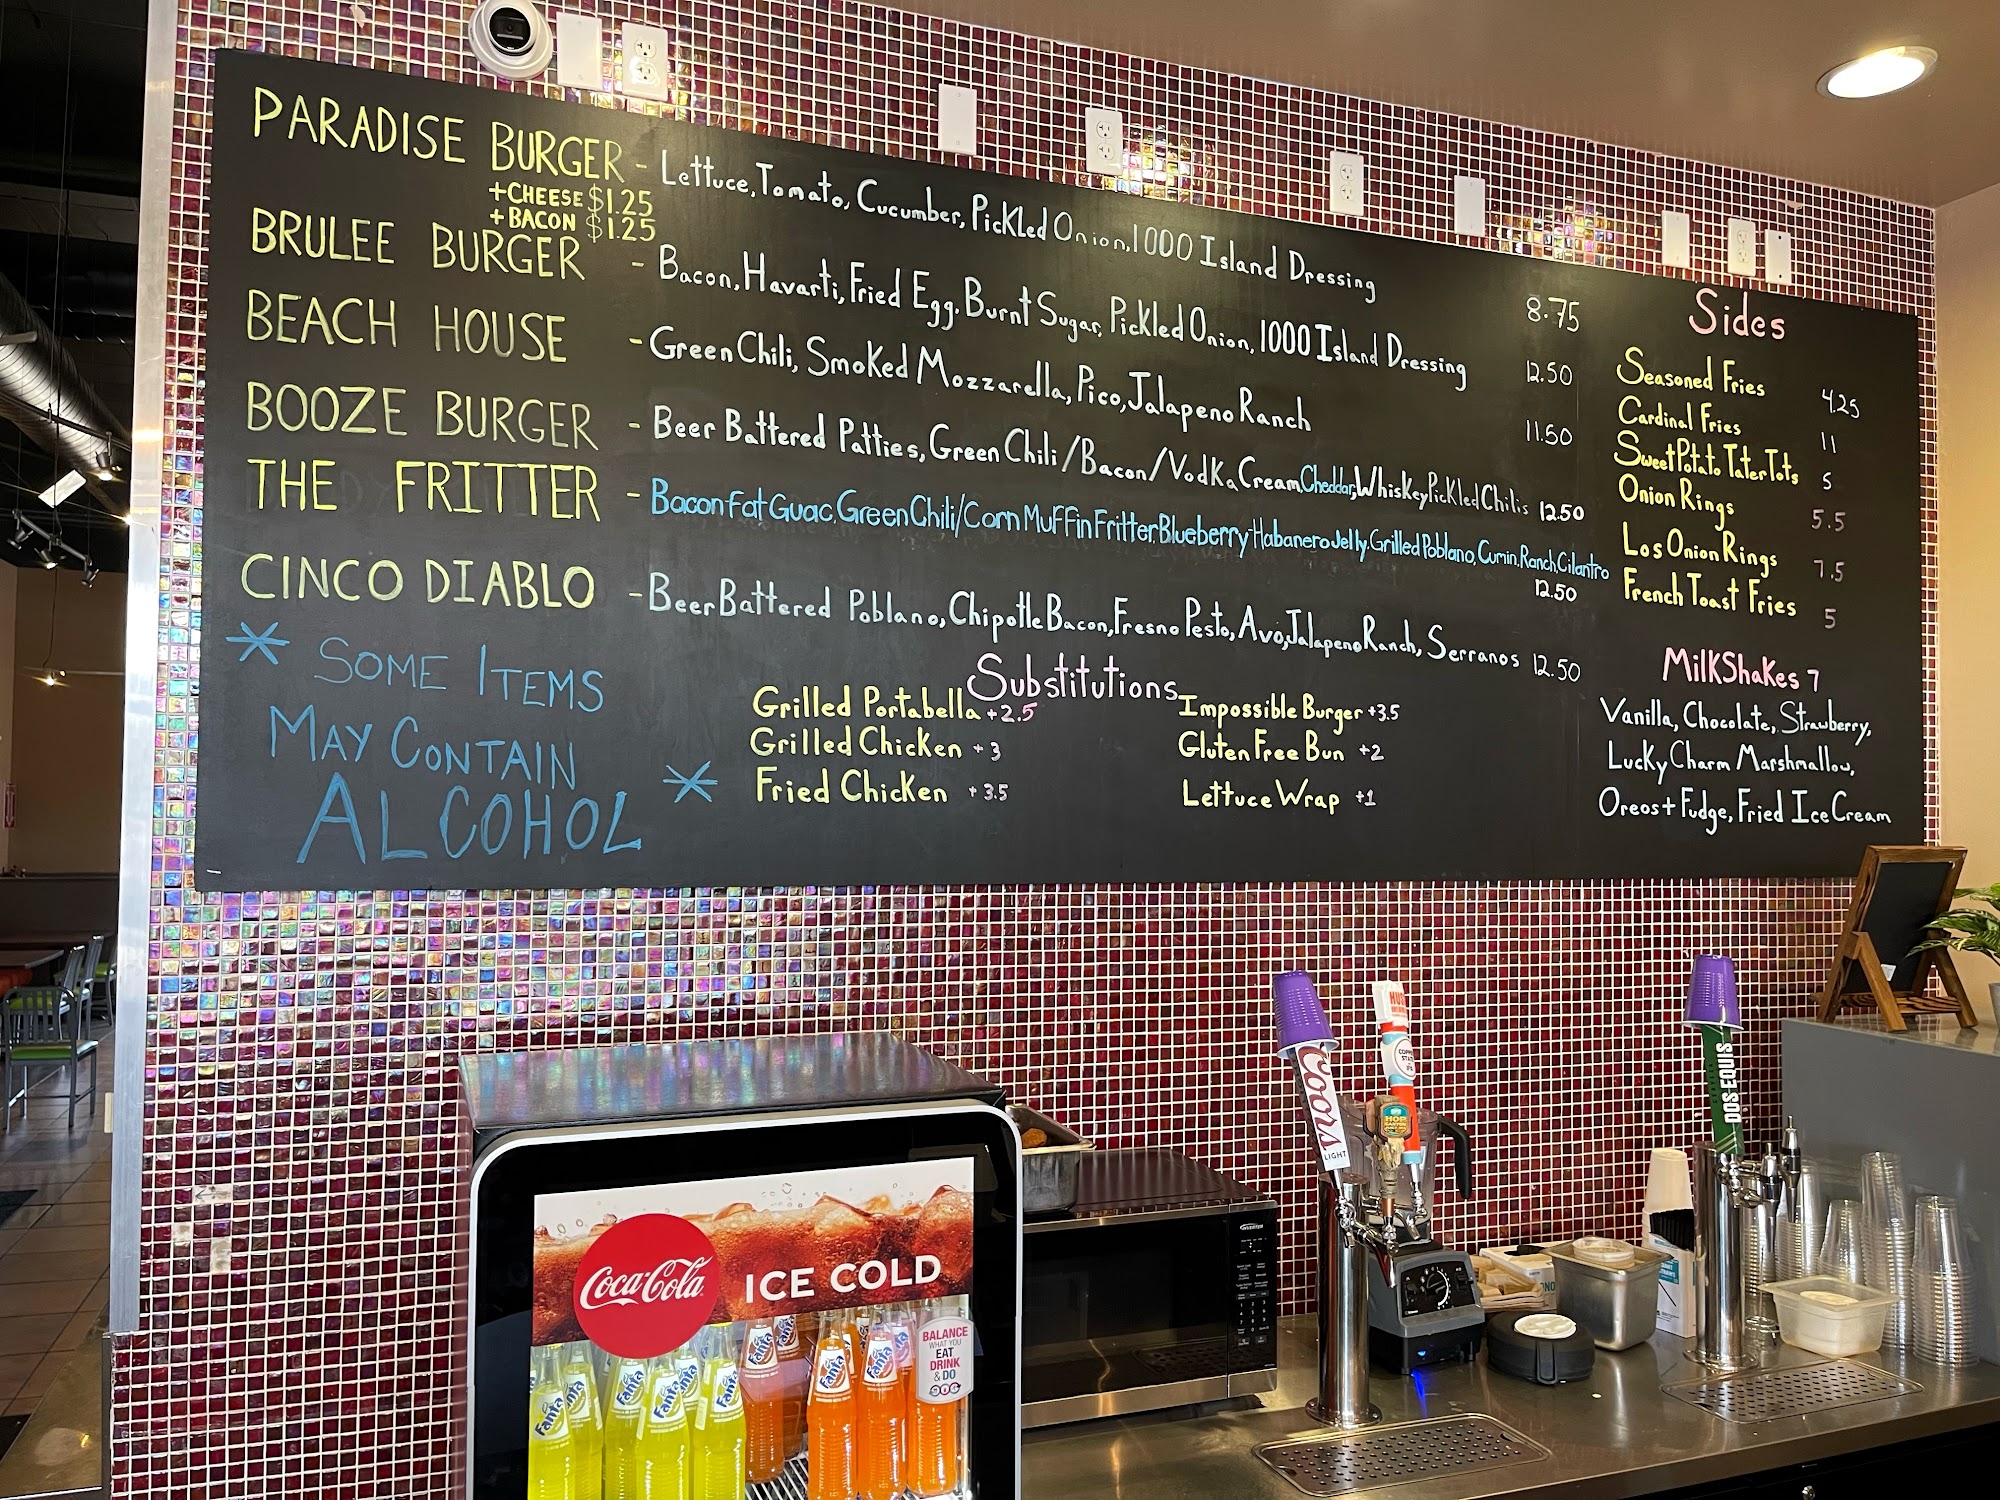 PARADISE BURGER - Lettuce, Tomato, Cucumber, Pickled Onion, 1000 Island Dressing 8.75
+CHEESE $1.25
+BACON $1.25
BRULEE BURGER - Bacon, Havarti, Fried Egg, Burnt Sugar, Pickled Onion, 1000 Island Dressing 12.50
BEACH HOUSE - Green Chili, Smoked Mozzarella, Pico, Jalapeno Ranch 11.50
BOOZE BURGER - Beer Battered Patties, Green Chili/Bacon/Vodka Cream, Cheddar, Whiskey Pickled Chilis 12.50
THE FRITTER - Bacon Fat Guac, Green Chili/Corn Muffin Fritter, Blueberry-Habanero Jelly, Grilled Poblano, Cumin, Ranch, Cilantro
12.50
CINCO DIABLO - Beer Battered Poblano, Chipotle Bacon, Fresno Pesto, Avo, Jalapeno Ranch, Serranos 12.50
* SOME ITEMS
MAY CONTAIN
ALCOHOL *
Substitutions
Grilled Portabella +2.5
Grilled Chicken +3
Fried Chicken +3.5
Impossible Burger +3.5
Gluten Free Bun +2
Lettuce Wrap +1
Sides
Seasoned Fries 4.25
Cardinal Fries 11
Sweet Potato Tater Tots 5
Onion Rings 5.5
Los Onion Rings 7.5
French Toast Fries 5
MilkShakes 7
Vanilla, Chocolate, Strawberry,
Lucky Charm Marshmallow,
Oreos + Fudge, Fried Ice Cream
Coca-Cola
ICE COLD
Fanta
Fanta
Fanta
Fanta
Fanta
Fanta
Fanta
Fanta
BALANCE
WHAT YOU
EAT
DRINK
& DO
Coors
LIGHT
HOP
CERVEZA
DOS EQUIS
INVERTER